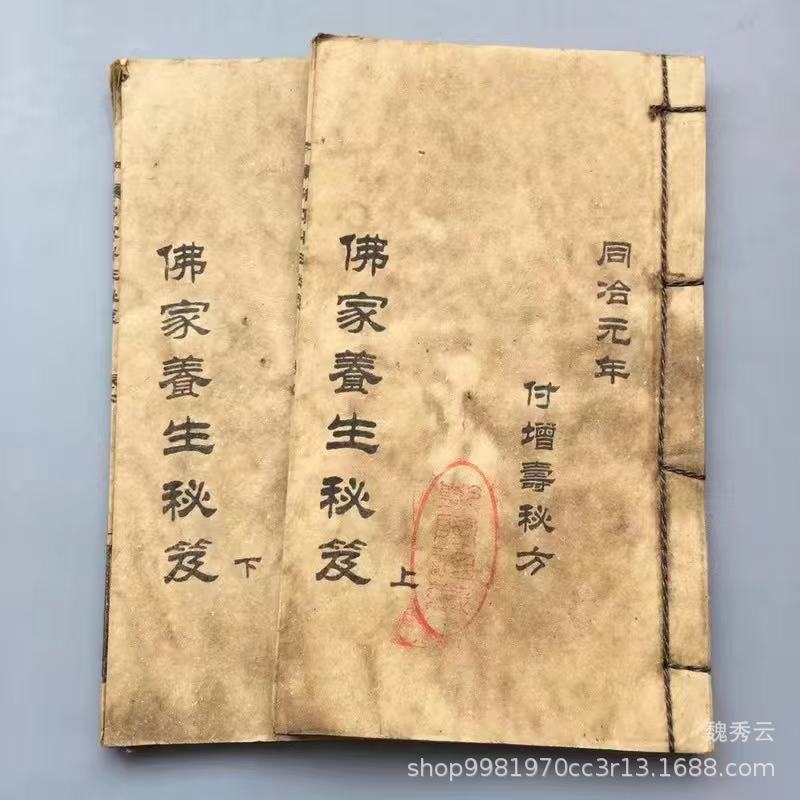 同治元年
付增壽秘方
佛家養生秘笈
上
佛家養生秘笈
下
魏秀云
shop9981970cc3r13.1688.com